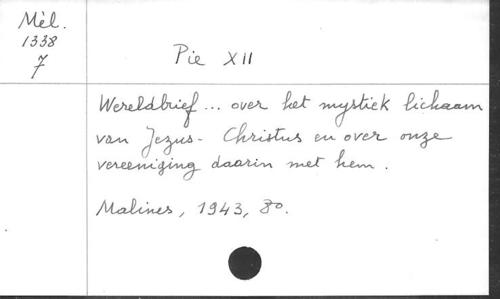 Mèl.
1338
7
Pie XII
Wereldbrief ... over het mystiek lichaam
van Jezus-Christus en over onze
vereeniging daarin met hem.
Malines, 1943, 8o.